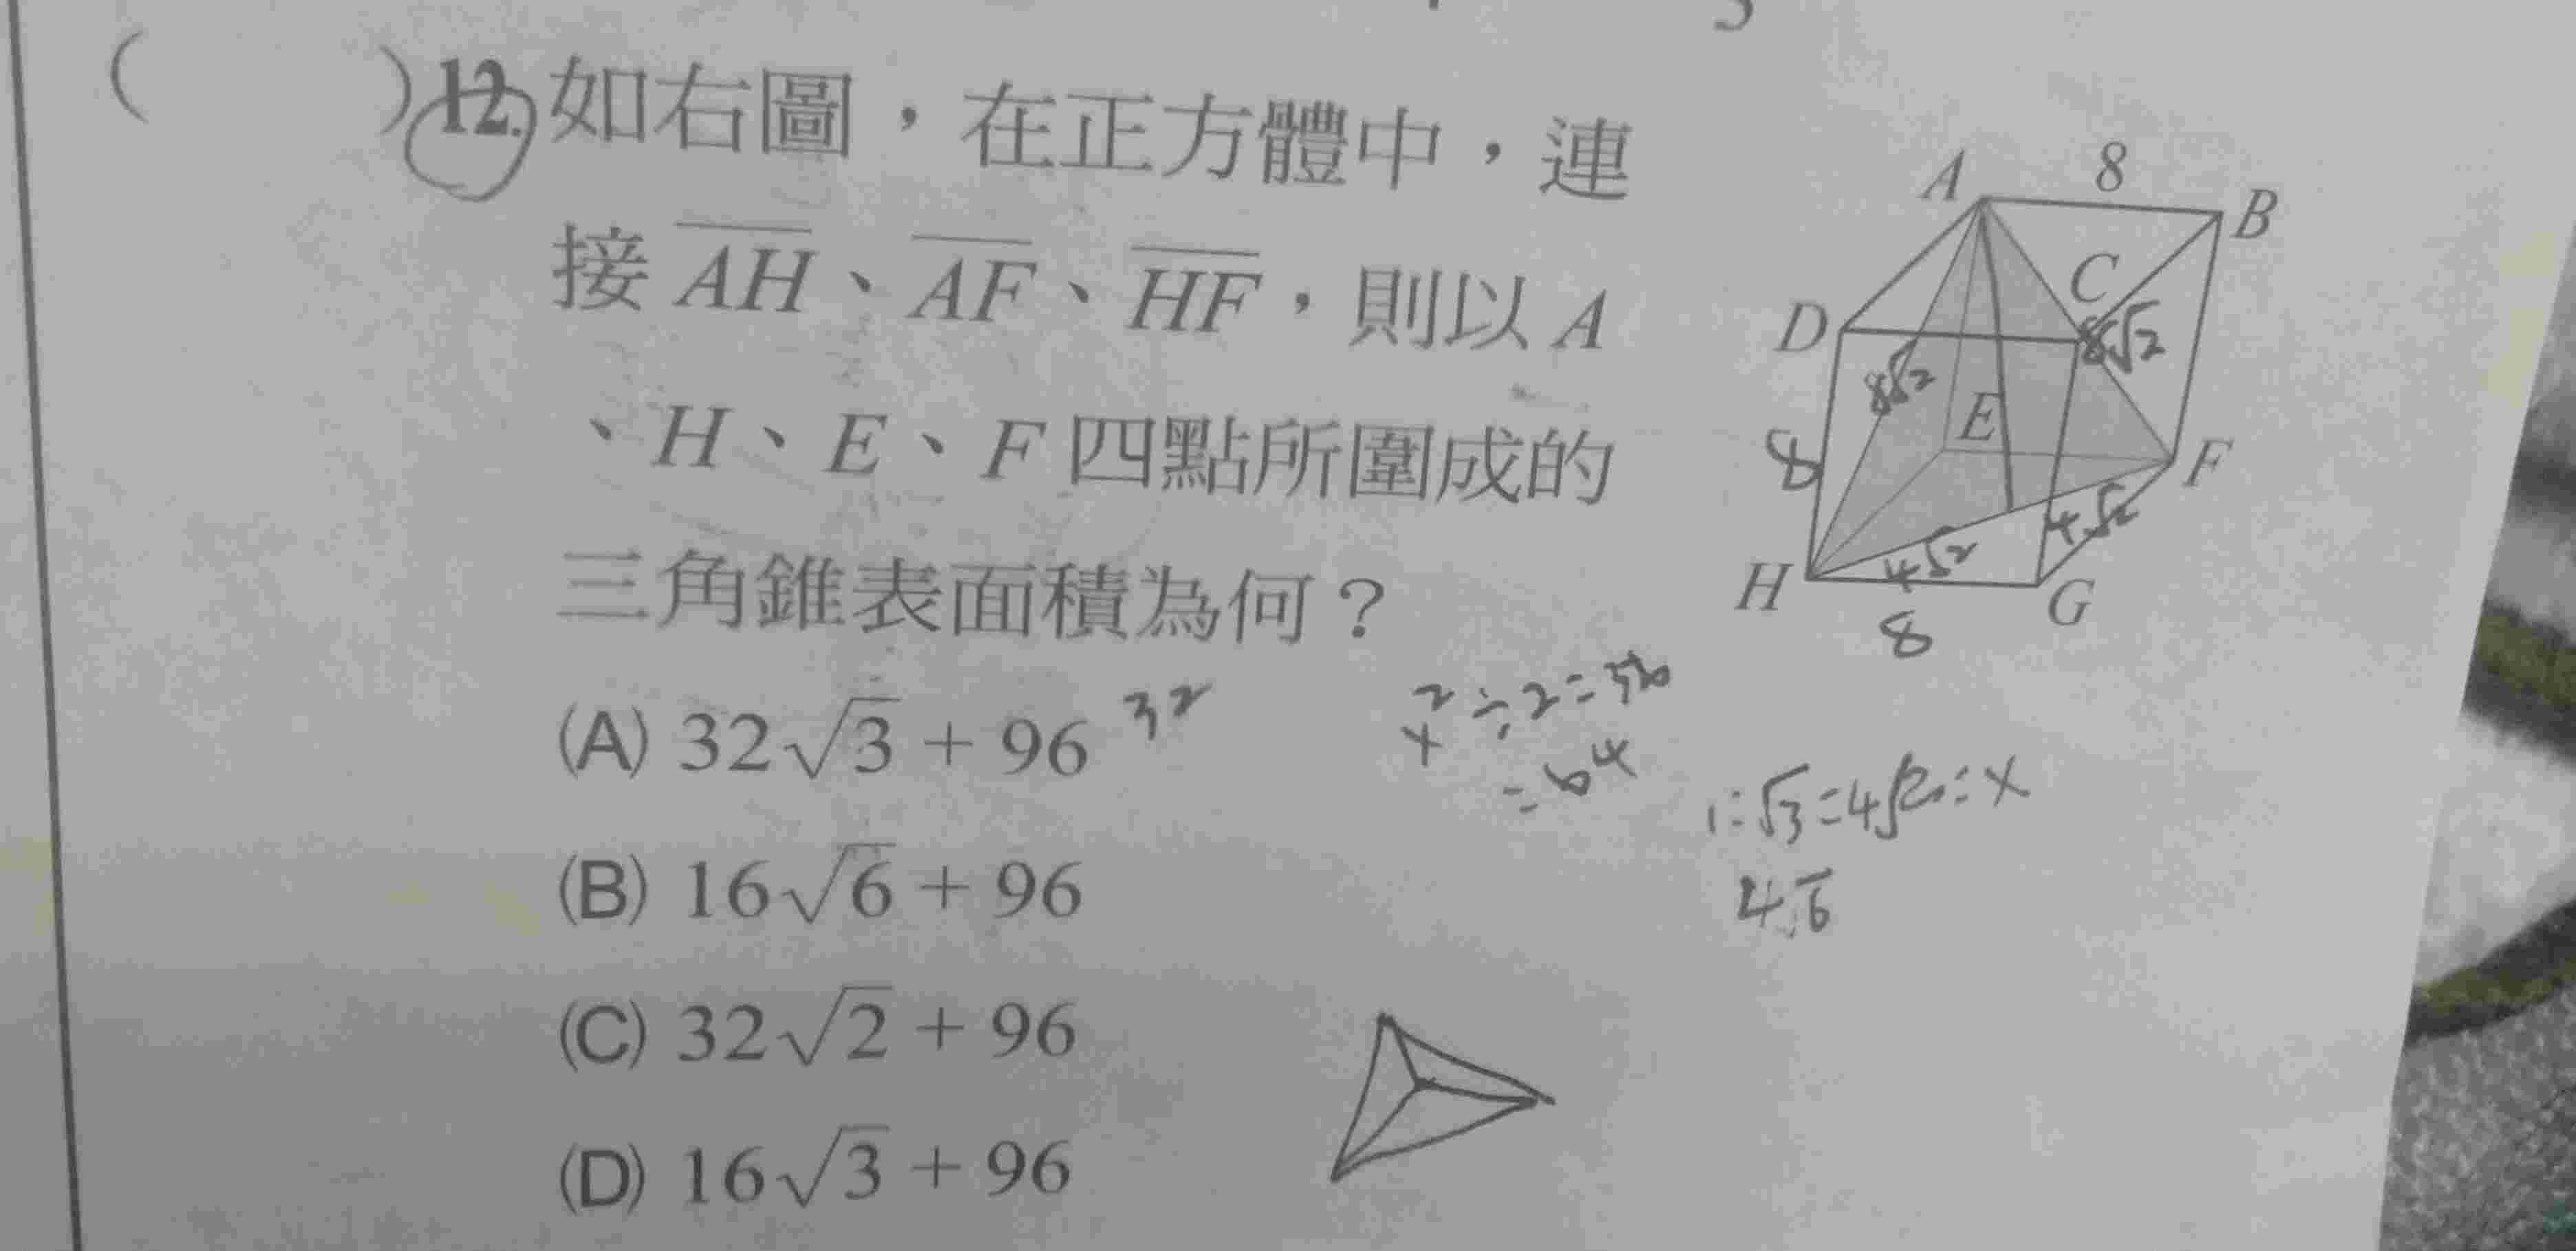 (　　)12. 如右圖，在正方體中，連
接 AH、AF、HF，則以 A
、H、E、F 四點所圍成的
三角錐表面積為何？
(A) 32√3 + 96 32
(B) 16√6 + 96
(C) 32√2 + 96
(D) 16√3 + 96
A 8 B
D C
8√2 8√2
E
8 F
4√2 4√2
H G
8
x²÷2=
=64
1:√3=4√2:x
4√6